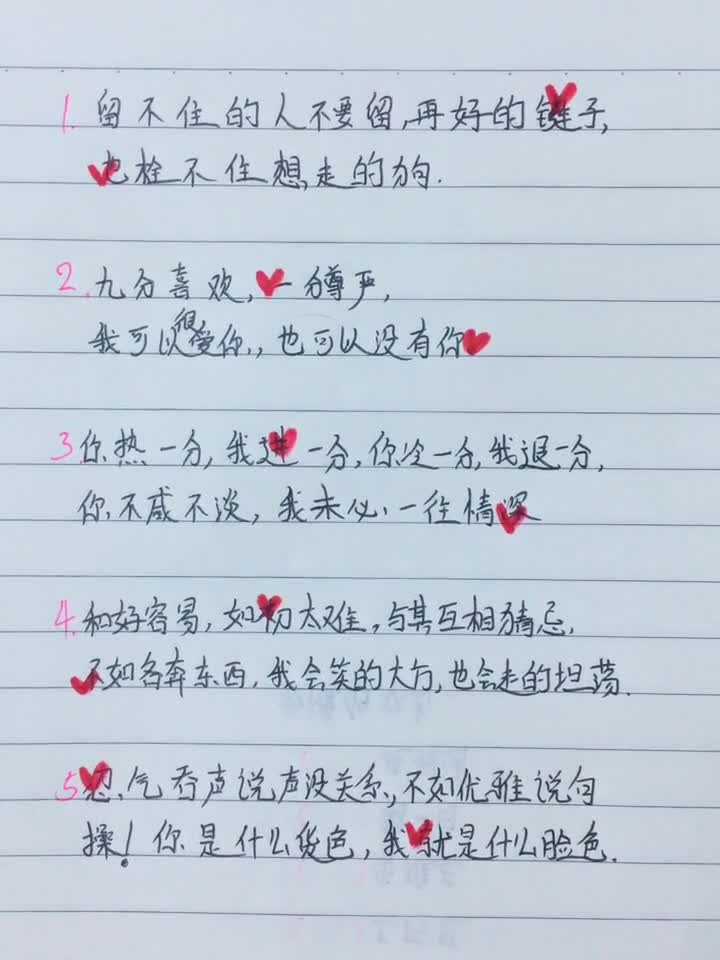 1. 留不住的人不要留,再好的链子,
也栓不住想走的狗.
2. 九分喜欢,一分尊严,
我可以很爱你,也可以没有你
3 你热一分,我进一分,你冷一分,我退一分,
你不咸不淡,我未必一往情深
4. 和好容易,如初太难,与其互相猜忌,
不如各奔东西,我会笑的大方,也会走的坦荡.
5 忍气吞声说声没关系,不如优雅说句
操!你是什么货色,我就是什么脸色.